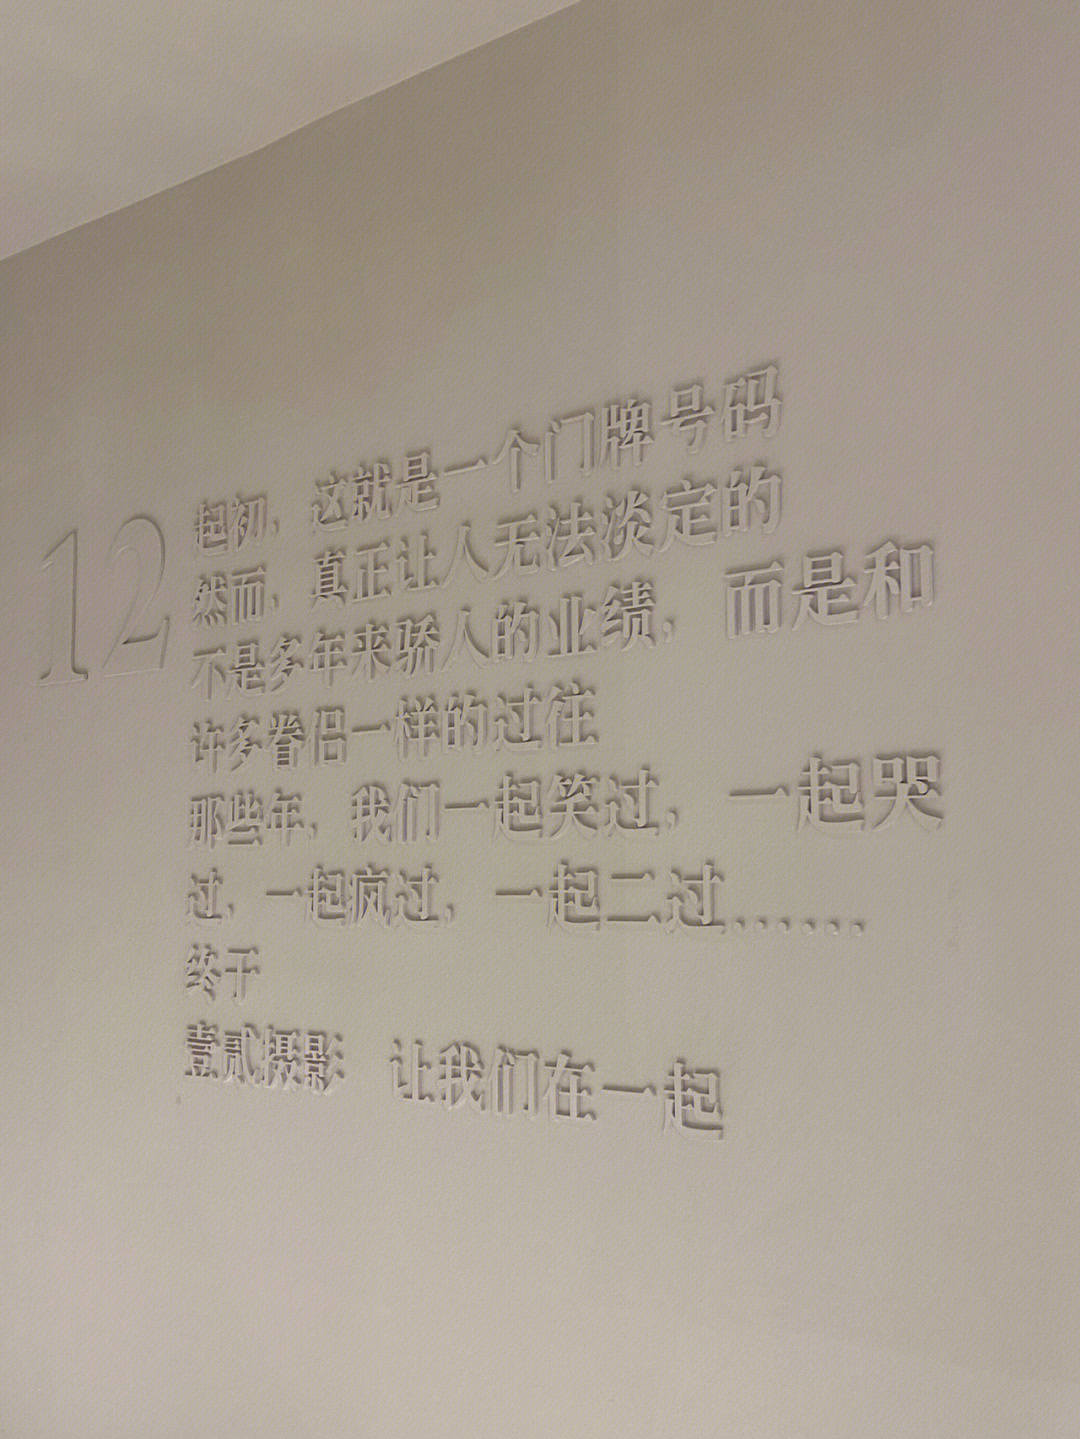 12
起初，这就是一个门牌号码
然而，真正让人无法淡定的
不是多年来骄人的业绩，而是和
许多眷侣一样的过往
那些年，我们一起笑过，一起哭
过，一起疯过，一起二过……
终于
壹贰摄影 让我们在一起